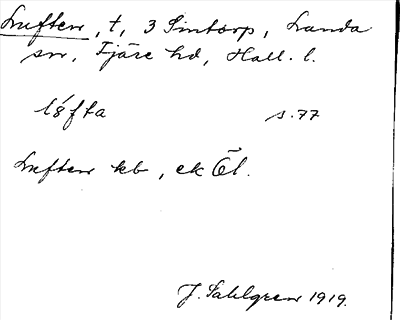 Luften, t, 3 Sintorp, Landa
sn, Fjäre hd, Hall. l.
lǿfta s. 77
Luften kb, ek Öl.
J. Sahlgren 1919.